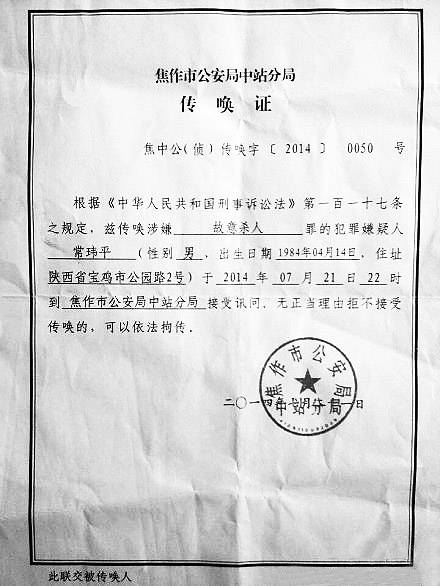 焦作市公安局中站分局
传唤证
焦中公(侦)传唤字〔2014〕0050号
根据《中华人民共和国刑事诉讼法》第一百一十七条
之规定，兹传唤涉嫌 故意杀人 罪的犯罪嫌疑人
常玮平 (性别 男，出生日期 1984年04月14日，住址
陕西省宝鸡市公园路2号) 于 2014 年 07 月 21 日 22 时
到 焦作市公安局中站分局 接受讯问．无正当理由拒不接受
传唤的，可以依法拘传．
焦作市公安局
中站分局
二〇一四年七月二十一日
此联交被传唤人